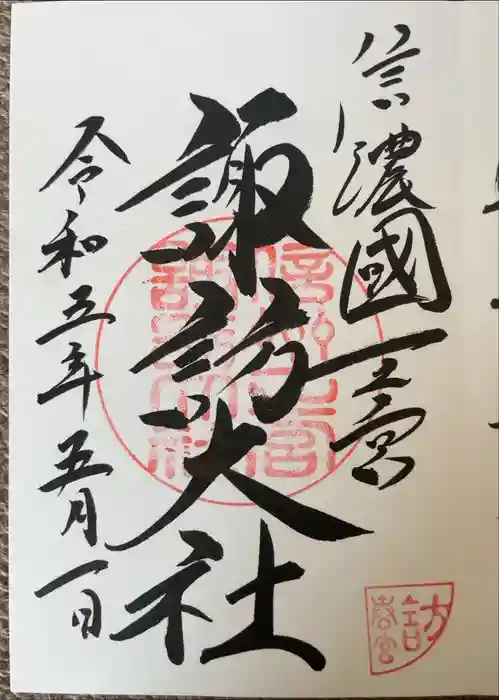 信濃國一之宮
諏訪大社
令和五年五月一日